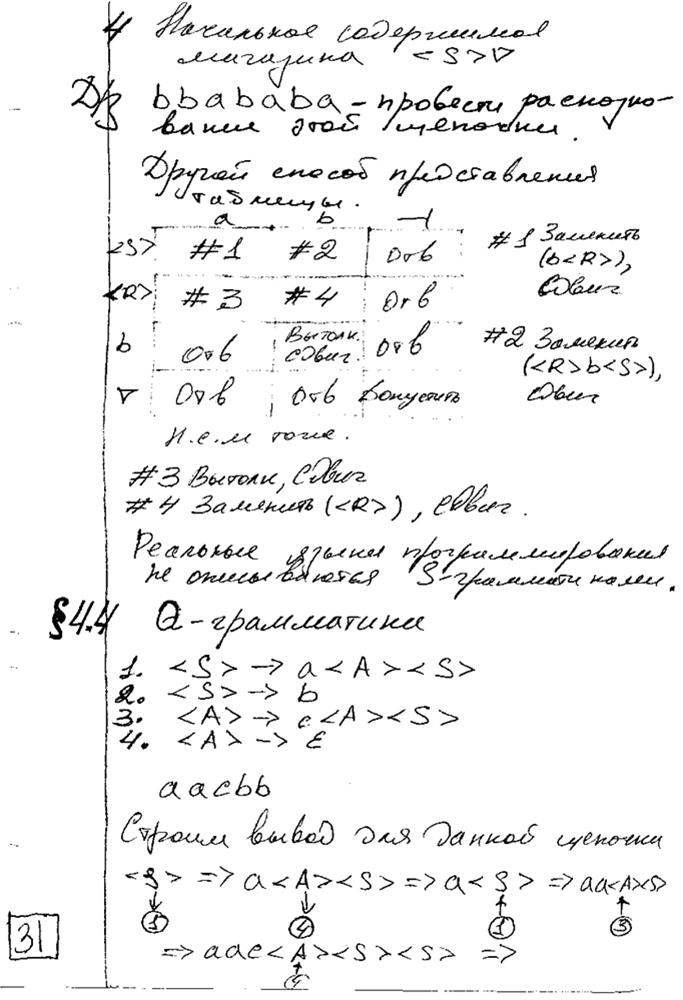 4 Начальное содержимое
магазина <S>∇
Д/з bbababa - провести распозно-
вание этой цепочки.
Другой способ представления
таблицы.
a b ⊣
<S> #1 #2 Отв
#1 Заменить
(b<R>),
Сдвиг
<R> #3 #4 Отв
b Отв Вытолк. Сдвиг Отв
#2 Заменить
(<R>b<S>),
Сдвиг
∇ Отв Отв Допустить
Н.с.м тоже.
#3 Вытолк, Сдвиг
#4 Заменить (<R>), Сдвиг.
Реальные языки программирования
не описываются S-грамматиками.
§4.4 Q-грамматики
1. <S> → a<A><S>
2. <S> → b
3. <A> → c<A><S>
4. <A> → ε
aacbb
Строим вывод для данной цепочки
<S> ⇒ a<A><S> ⇒ a<S> ⇒ aa<A><S>
1 4 1 3
⇒ aac<A><S><S> ⇒
4
31